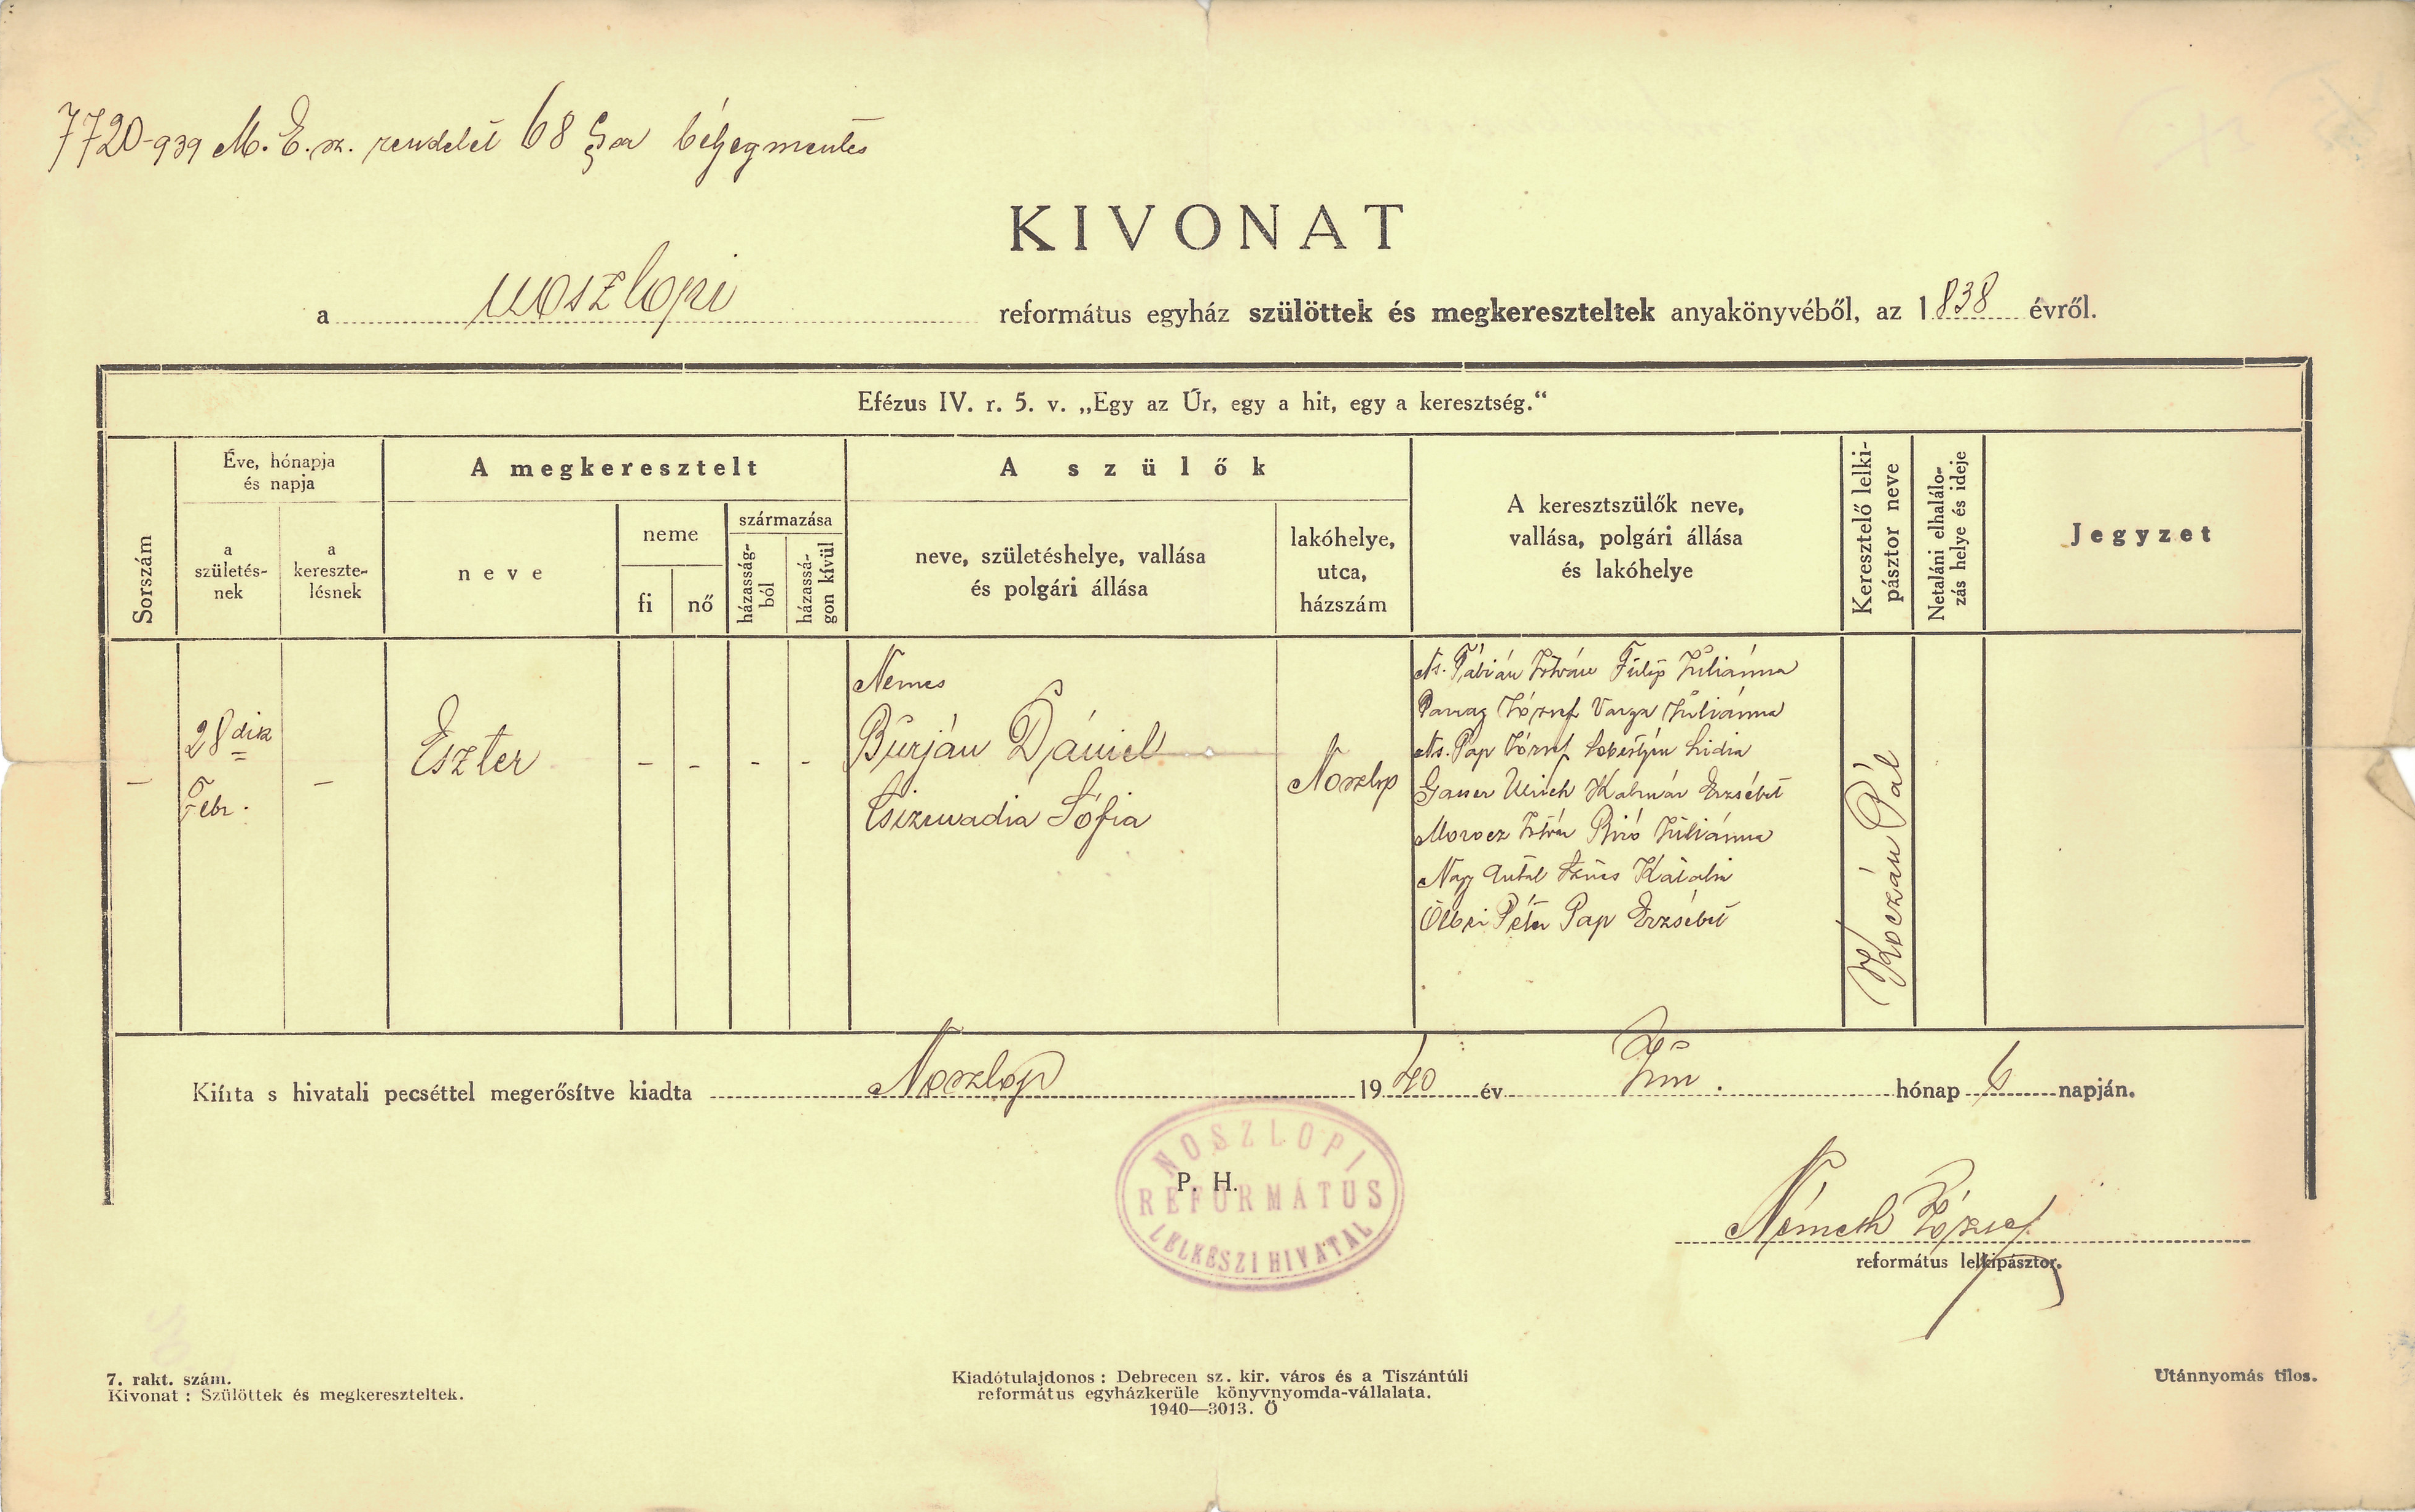 7720-939 M. E. sz. rendelet 68 §a bélyegmentes
KIVONAT
a noszlopi református egyház szülöttek és megkereszteltek anyakönyvéből, az 1838 évről.
Efézus IV. r. 5. v. „Egy az Úr, egy a hit, egy a keresztség.“
Sorszám
Éve, hónapja
és napja
a
születés-
nek
a
kereszte-
lésnek
A megkeresztelt
neve
neme
fi
nő
származása
házasság-
ból
házassá-
gon kívül
A szülők
neve, születéshelye, vallása
és polgári állása
lakóhelye,
utca,
házszám
A keresztszülők neve,
vallása, polgári állása
és lakóhelye
Keresztelő lelki-
pásztor neve
Netaláni elhalálo-
zás helye és ideje
Jegyzet
–
28 dik
Febr.
–
Eszter
- - - -
Nemes
Burján Dániel
Csizmadia Sófia
Noszlop
Ns. Fábián István Fülip Juliánna
Parrag József Varga Juliánna
Ns. Pap József Lidia
Gasser Ulrich Kalmár Erzsébet
Morocz István Biró Juliánna
Nagy Antal Katalin
Péter Pap Erzsébet
Koczán Pál
Kiírta s hivatali pecséttel megerősítve kiadta Noszlop 1940 év Jún. hónap 6 napján.
P. H.
NOSZLOPI
REFORMÁTUS
LELKÉSZI HIVATAL
Németh József
református lelkipásztor.
7. rakt. szám.
Kivonat : Szülöttek és megkereszteltek.
Kiadótulajdonos : Debrecen sz. kir. város és a Tiszántúli
református egyházkerüle könyvnyomda-vállalata.
1940—3013. Ö
Utánnyomás tilos.